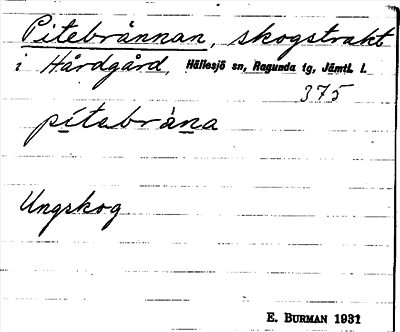 Pitebrännan, skogstrakt
i Hårdgård, Hällesjö sn, Ragunda tg, Jämtl. l.
375
pìtebràna
Ungskog
E. BURMAN 1931